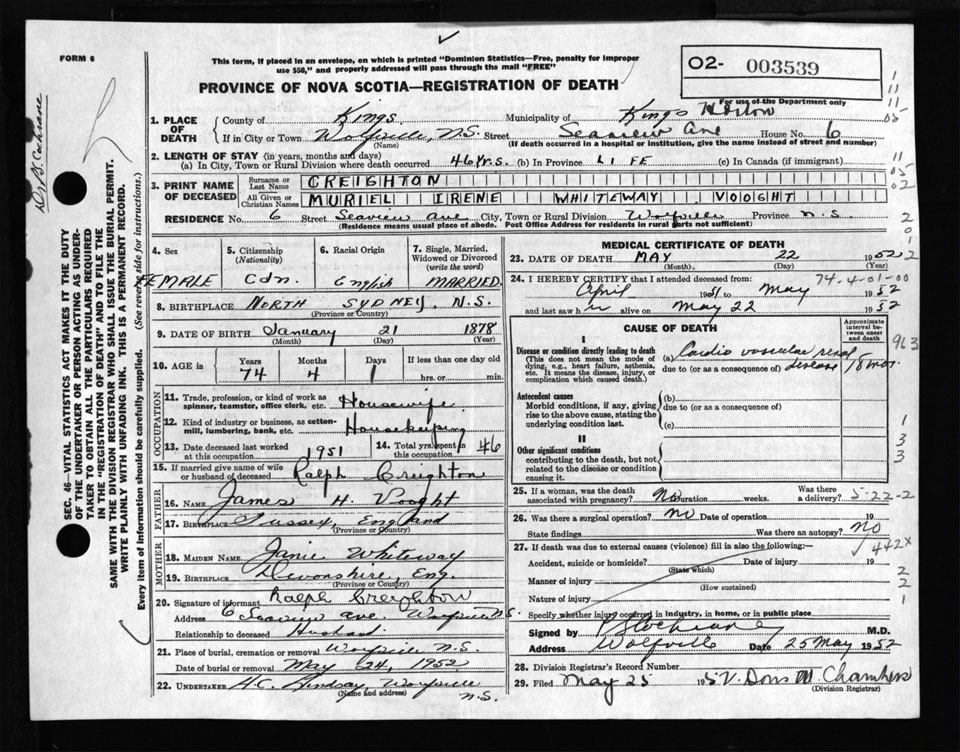 FORM 6
This form, if placed in an envelope, on which is printed "Dominion Statistics—Free, penalty for improper
use $50," and properly addressed will pass through the mail "FREE"
O2- 003539
PROVINCE OF NOVA SCOTIA—REGISTRATION OF DEATH
For use of the Department only
1. PLACE OF DEATH
County of Kings Municipality of Kings Horton
If in City or Town Wolfville, N.S. Street Seaview Ave House No. 6
(Name) (If death occurred in a hospital or institution, give the name instead of street and number)
2. LENGTH OF STAY (in years, months and days)
(a) In City, Town or Rural Division where death occurred 46 yrs. (b) In Province LIFE (c) In Canada (if immigrant)
3. PRINT NAME OF DECEASED
Surname or Last Name CREIGHTON
All Given or Christian Names MURIEL IRENE WHITEWAY VOOGHT
RESIDENCE No. 6 Street Seaview Ave City, Town or Rural Division Wolfville Province N.S.
(Residence means usual place of abode. Post Office Address for residents in rural parts not sufficient)
4. Sex
FEMALE
5. Citizenship (Nationality)
Cdn.
6. Racial Origin
English
7. Single, Married, Widowed or Divorced (write the word)
MARRIED
8. BIRTHPLACE NORTH SYDNEY, N.S.
(Province or Country)
9. DATE OF BIRTH January 21 1878
(Month) (Day) (Year)
10. AGE in Years Months Days If less than one day old
74 4 1 hrs. or min.
OCCUPATION
11. Trade, profession, or kind of work as
spinner, teamster, office clerk, etc. Housewife
12. Kind of industry or business, as cotton-
mill, lumbering, bank, etc. Housekeeping
13. Date deceased last worked at this occupation 1951
14. Total yrs. spent in this occupation 46
15. If married give name of wife
or husband of deceased Ralph Creighton
FATHER
16. NAME James H. Vooght
17. BIRTHPLACE Sussex, England
(Province or Country)
MOTHER
18. MAIDEN NAME Janie Whiteway
19. BIRTHPLACE Devonshire, Eng.
(Province or Country)
20. Signature of informant Ralph Creighton
Address 6 Seaview Ave. Wolfville N.S.
Relationship to deceased Husband
21. Place of burial, cremation or removal Wolfville N.S.
Date of burial or removal May 24, 1952
22. UNDERTAKER H.C. Lindsay, Wolfville
(Name and address) N.S.
MEDICAL CERTIFICATE OF DEATH
23. DATE OF DEATH MAY 22 1952
(Month) (Day) (Year)
24. I HEREBY CERTIFY that I attended deceased from: 74-4-01-00
April 1951 to May 1952
and last saw h er alive on May 22 1952
CAUSE OF DEATH
Approximate interval between onset and death
963
I
Disease or condition directly leading to death
(This does not mean the mode of
dying, e.g., heart failure, asthenia,
etc. It means the disease, injury, or
complication which caused death.)
(a) Cardio vascular renal
due to (or as a consequence of) disease 18 mos
Antecedent causes
Morbid conditions, if any, giving
rise to the above cause, stating the
underlying condition last.
(b)
due to (or as a consequence of)
(c)
II
Other significant conditions
contributing to the death, but not
related to the disease or condition
causing it.
25. If a woman, was the death
associated with pregnancy? No Duration weeks. Was there a delivery? 5-22-2
26. Was there a surgical operation? No Date of operation 19
State findings Was there an autopsy? No
27. If death was due to external causes (violence) fill in also the following:— 442X
Accident, suicide or homicide? Date of injury 19
(State which)
Manner of injury
(How sustained)
Nature of injury
Specify whether injury occurred in industry, in home, or in public place
Signed by B Cochrane M.D.
Address Wolfville Date 25 May 1952
28. Division Registrar's Record Number
29. Filed May 25 195 Doris M Chambers
(Division Registrar)
SEC. 46—VITAL STATISTICS ACT MAKES IT THE DUTY
OF THE UNDERTAKER OR PERSON ACTING AS UNDER-
TAKER TO OBTAIN ALL THE PARTICULARS REQUIRED
IN THE "REGISTRATION OF DEATH" AND TO FILE THE
SAME WITH THE DIVISION REGISTRAR WHO SHALL ISSUE THE BURIAL PERMIT.
WRITE PLAINLY WITH UNFADING INK. THIS IS A PERMANENT RECORD.
Every item of information should be carefully supplied. (See reverse side for instructions.)
Dr. B. Cochrane